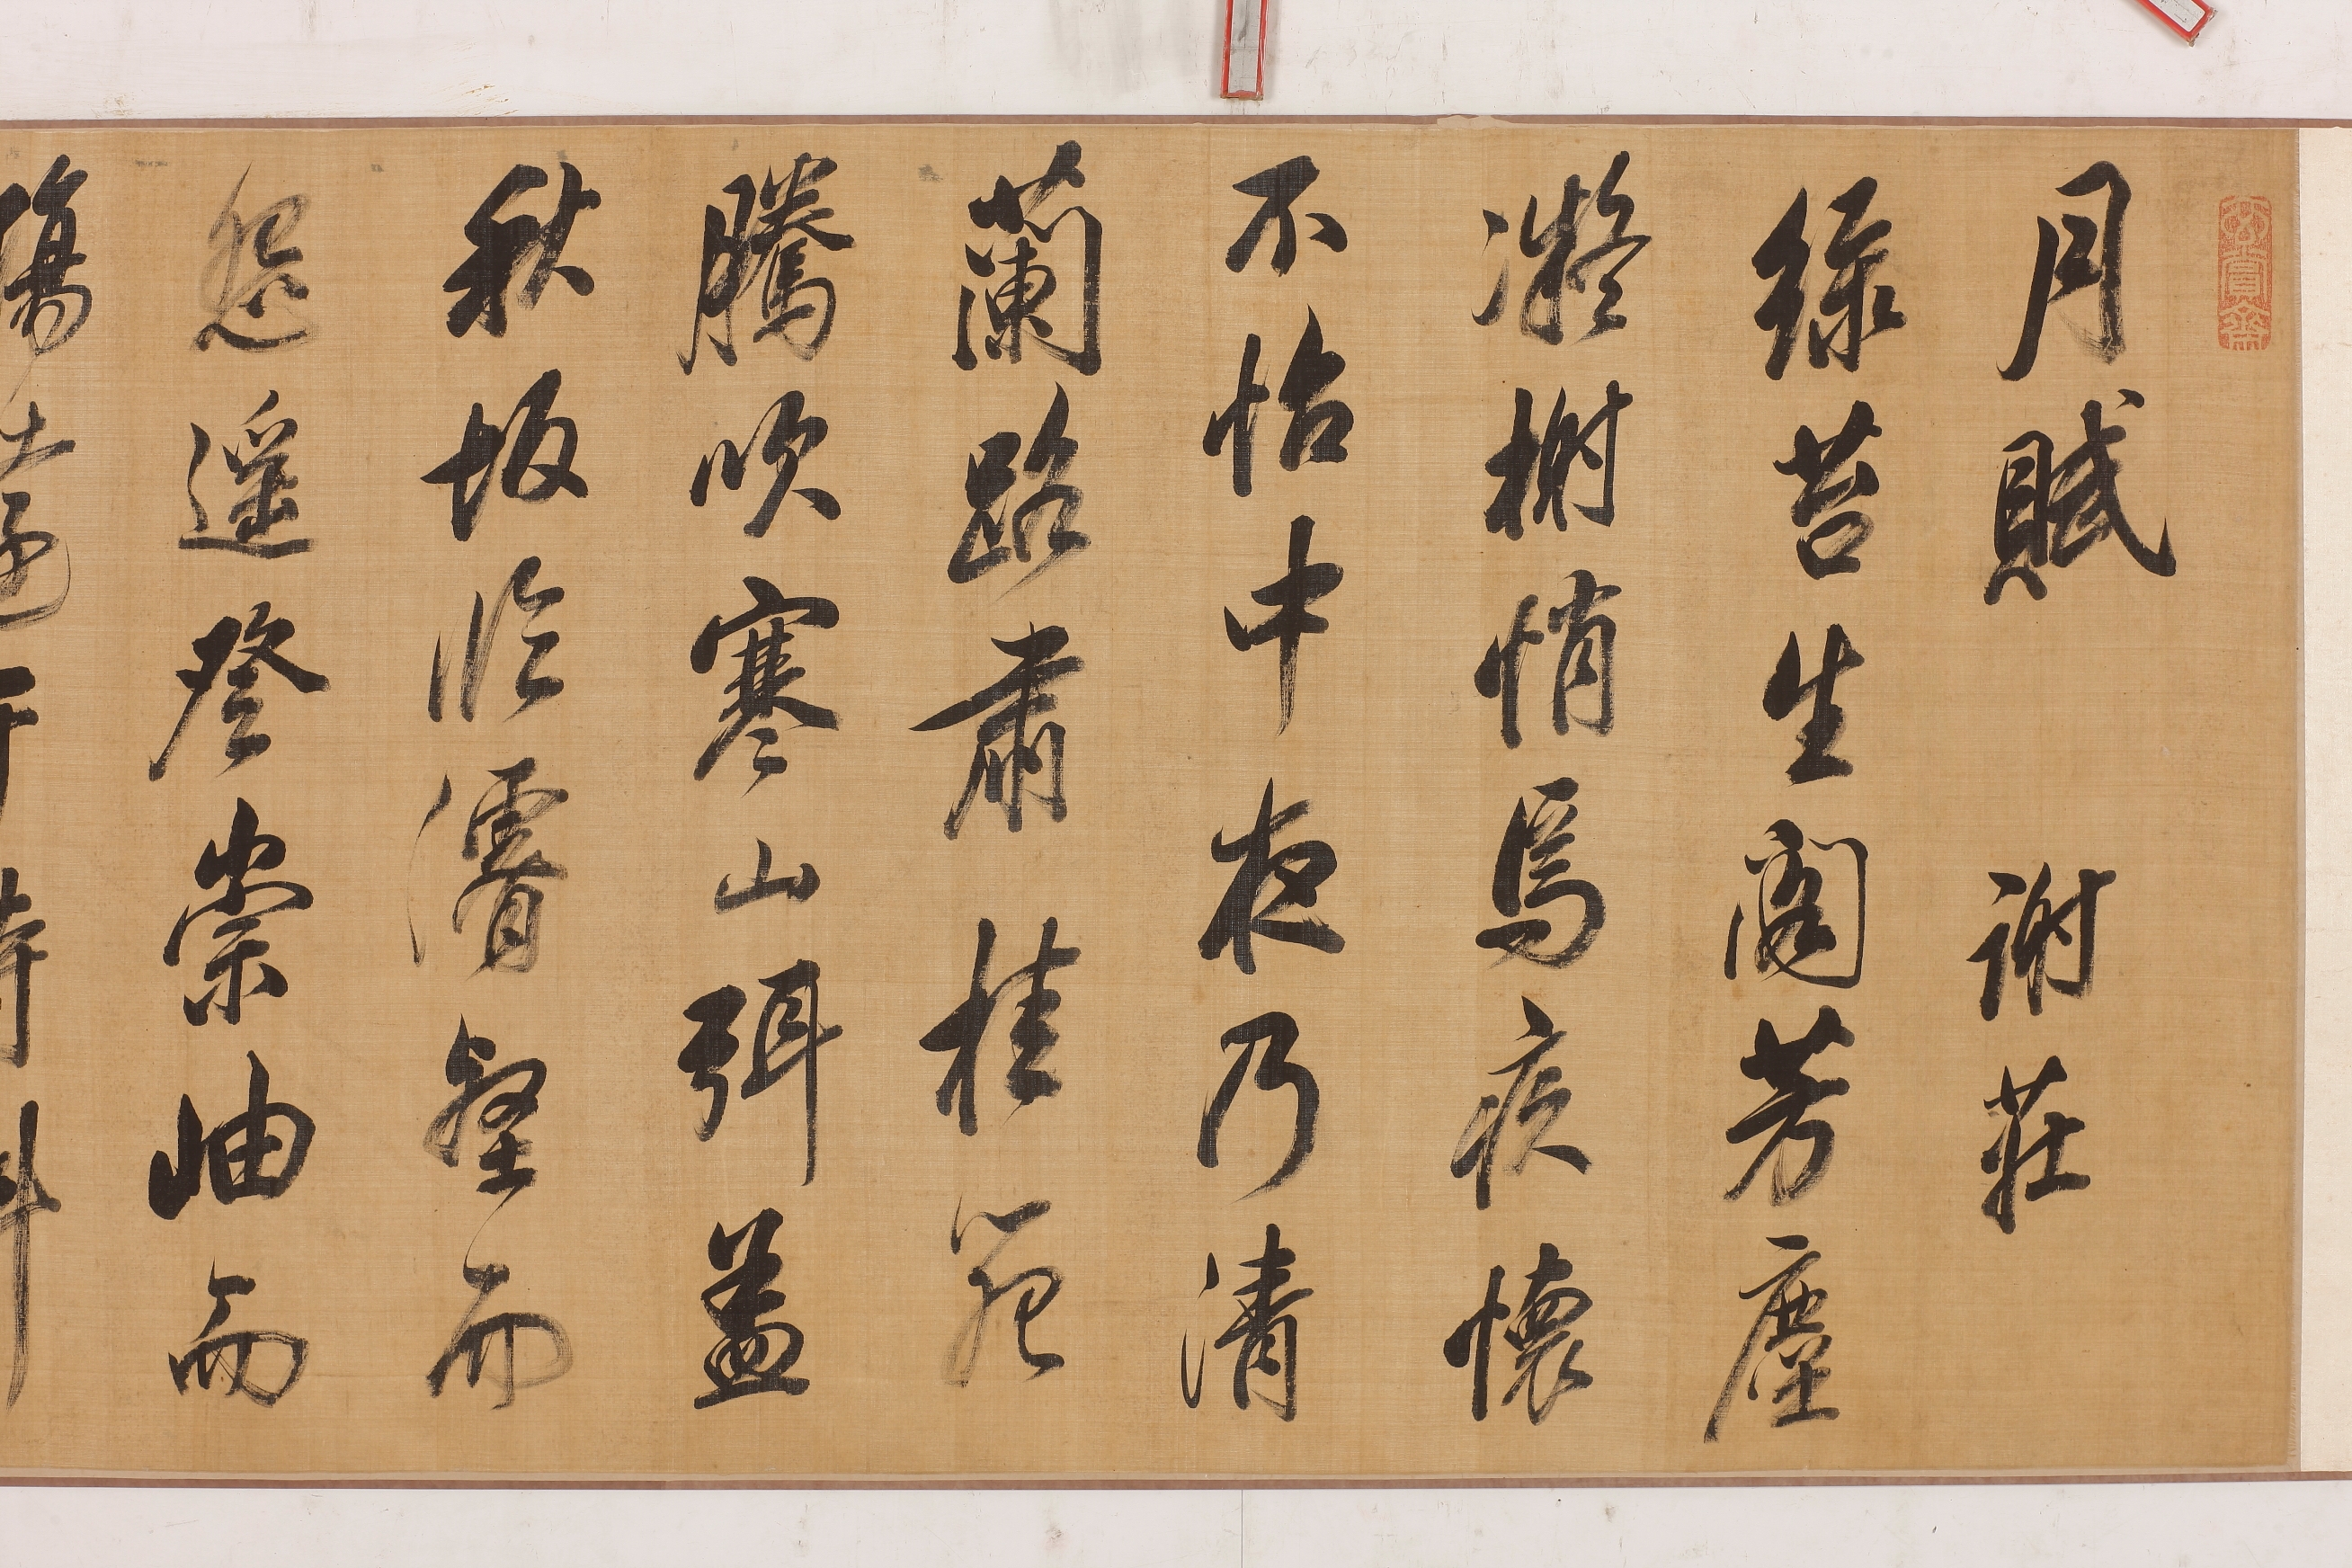 玄賞齋
月賦 謝莊
綠苔生閣芳塵
凝榭悄焉疚懷
不怡中夜乃清
蘭路肅桂苑
騰吹寒山弭蓋
秋坂臨濬壑而
怨遙登崇岫而
傷遠于時斜